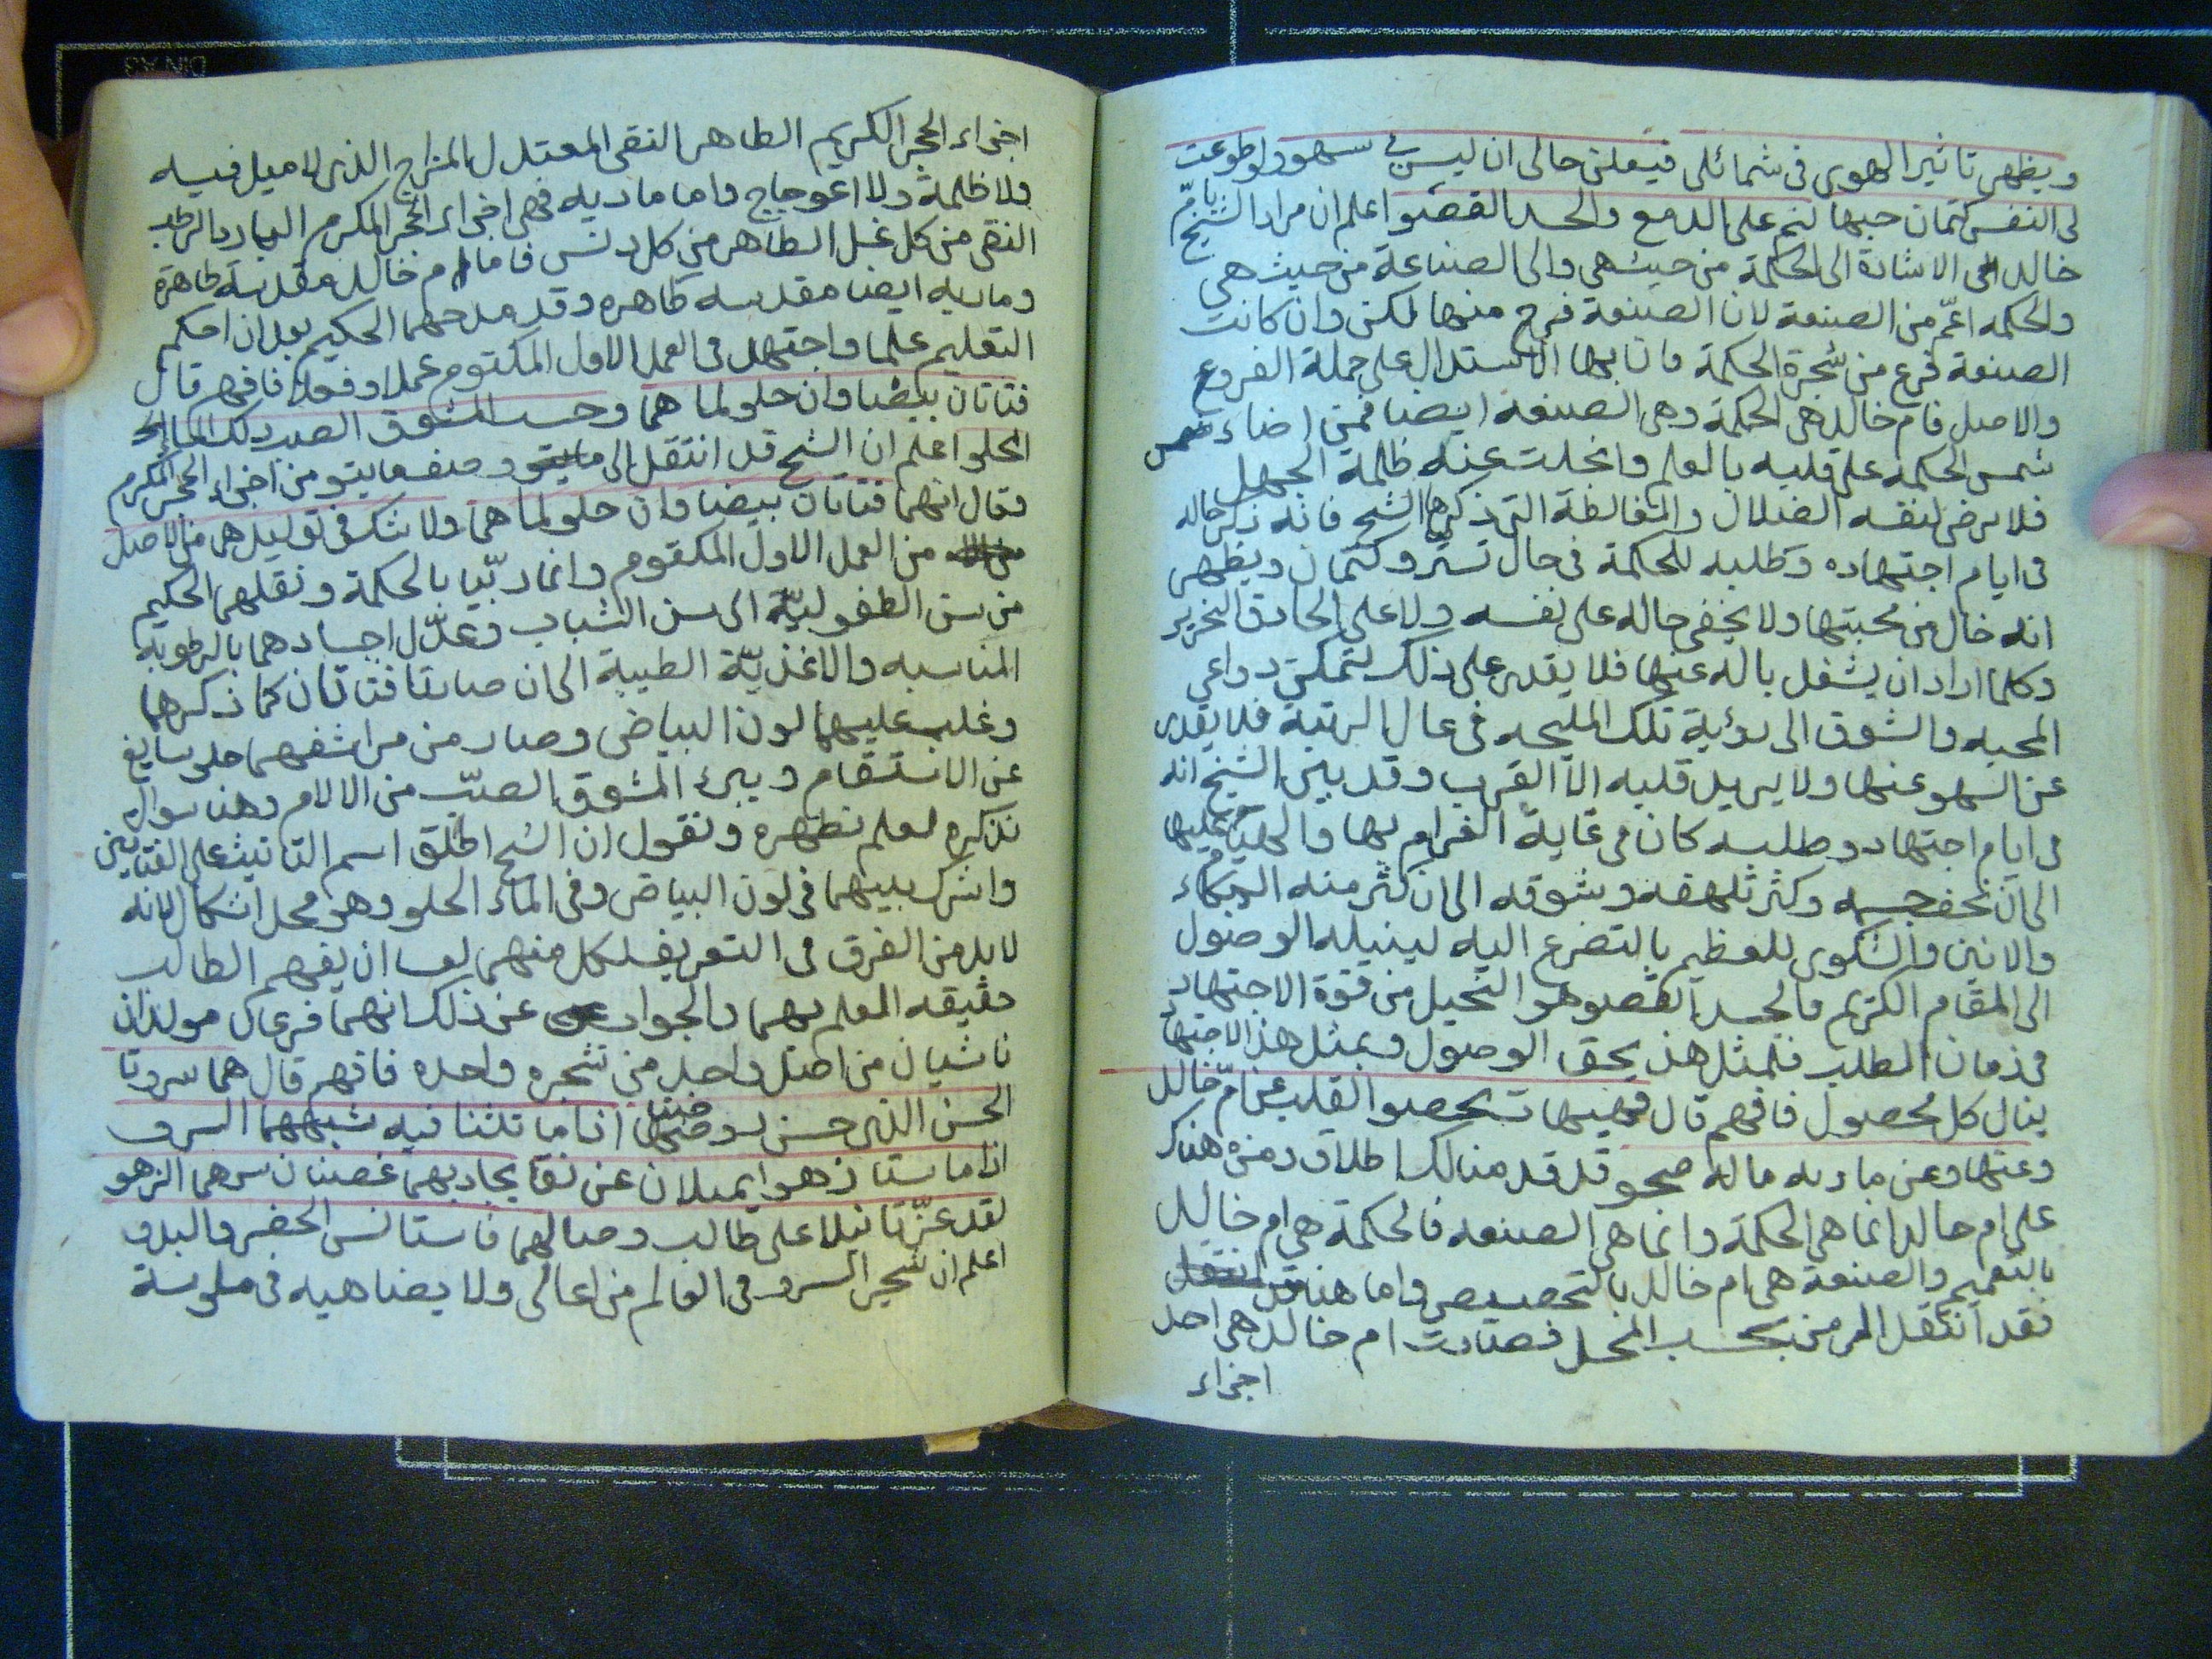 ويظهر تاثير الهوى فى شمائلى فيعلن حالى ان ليس بى سهو ولو طوعت
لى النفس كتمان حبها لنم على الدمع والجسد النضو اعلم ان مراد الشيخ بام
خالد الى الاشارة الى الحكمة من حيث هى والى الصناعة من حيث هى
والحكمه اعمّ من الصنعة لان الصنعة فرع منها لكن وان كانت
الصنعة فرع من شجرة الحكمة فان بها الاستدلال على جملة الفروع
والاصل فام خالد هى الحكمة وهى الصنعه ايضا فمتى اضاءت
شمس الحكمه على قلبه بالعلم وانجلت عنه ظلمة الجهل
فلا يرضى لنفسه الضلال والمغالطة التى ذكرها الشيخ فانه ذكر حاله
فى ايام اجتهاده وطلبه للحكمة فى حال تستر وكتمان ويظهر
انه خال من محبتها ولا يخفى حاله على نفسه ولا على الحاذق النحرير
وكلما اراد ان يشغل باله عنها فلا يقدر على ذلك لتمكن دواعى
المحبه والشوق الى رؤية تلك المليحه فى عالى الرتبة فلا يقدر
عن السهو عنها ولا يريد قلبه الا القرب وقد بين الشيخ انه
فى ايام اجتهاده وطلبه كان فى غاية الغرام بها والهيام عليها
الى ان نحف جسمه وكثر تلهفه وشوقه الى ان كثر منه البكاء
والانين والشكوى للعظيم بالتضرع اليه لينيله الوصول
الى المقام الكريم والجسد النضو هو النحيل من قوة الاجتهاد
فى زمان الطلب فلمثل هذ يحق الوصول وبمثل هذ الاجتهاد
ينال كل محصول فافهم قال فهيهات يصحو القلب عن امّ خالد
وعنها وعن ماريه ماله صحو قد قدمنا لك اطلاق رمزه هناك
على ام خالد انما هى الحكمة وانما هى الصنعه فالحكمة هى ام خالد
بالتعميم والصنعة هى ام خالد بالتخصيص واما هنا
فقد انتقل الرمز بحسب المحل فصارت ام خالد هى احد
اجزاء
اجزاء الحجر الكريم الطاهر النقى المعتدل المزاج الذى لا ميل فيه
ولا ظلمة ولا اعوجاج واما ماريه فهى اجزاء الحجر المكرم البارد الرطب
النقى من كل غسل الطاهر من كل دنس فاما ام خالد مقدسة طاهرة
وماريه ايضا مقدسه طاهره وقد مدحهما الحكيم بعد ان احكم
التعليم علما واجتهد فى العمل الاول المكتوم عملا وفعلا فافهم قال
فتاتان بيضاوان حلو لماهما وحسب المشوق الصب ذلك اللما
الحلو اعلم ان الشيخ قد انتقل الى وصف من اجزاء الحجر المكرم
وقال انهما فتاتان بيضاوان حلو لماهما ولا شك فى توليدهم من الاصل
من العمل الاول المكتوم وانما ربّيا بالحكمة ونقلهما الحكيم
من سن الطفوليّة الى سن الشباب وعدّل اجسادهما بالرطوبه
المناسبه والاغذيّة الطيبة الى ان صارتا فتاتان كما ذكرهما
وغلب عليهما لون البياض وصار من مراشفهما حلو سايغ
عن الاستقام ويبرئ المشوق الصبّ من الالام وهنا سوال
نذكره لعلم نظهره ونقول ان الشيخ اطلق اسم التانيث على الفتاتين
واشرك بينهما فى لون البياض وفى الماء الحلو وهو محل اشكال لانه
لا بد من الفرق فى التعريف لكل منهما ان يفهم الطالب
حقيقه العلم بهما والجواب عن ذلك انهما فرعان مولدان
ناشيان من اصل واحد من شجره واحده فافهم قال هما سروتا
الحسن الذى حسن روضتها اذا ما تثنا فيه شبههما السرو
اذا ما ستا زهوا يميلان عن نقا يجاد بهما غصنان سرهما الزهو
لقد عزّتا نيلا على طالب وصالهما فاستانس الحضر والبدو
اعلم ان شجر السرو فى العالم من اعالى ولا يضاهيه فى ملوسة